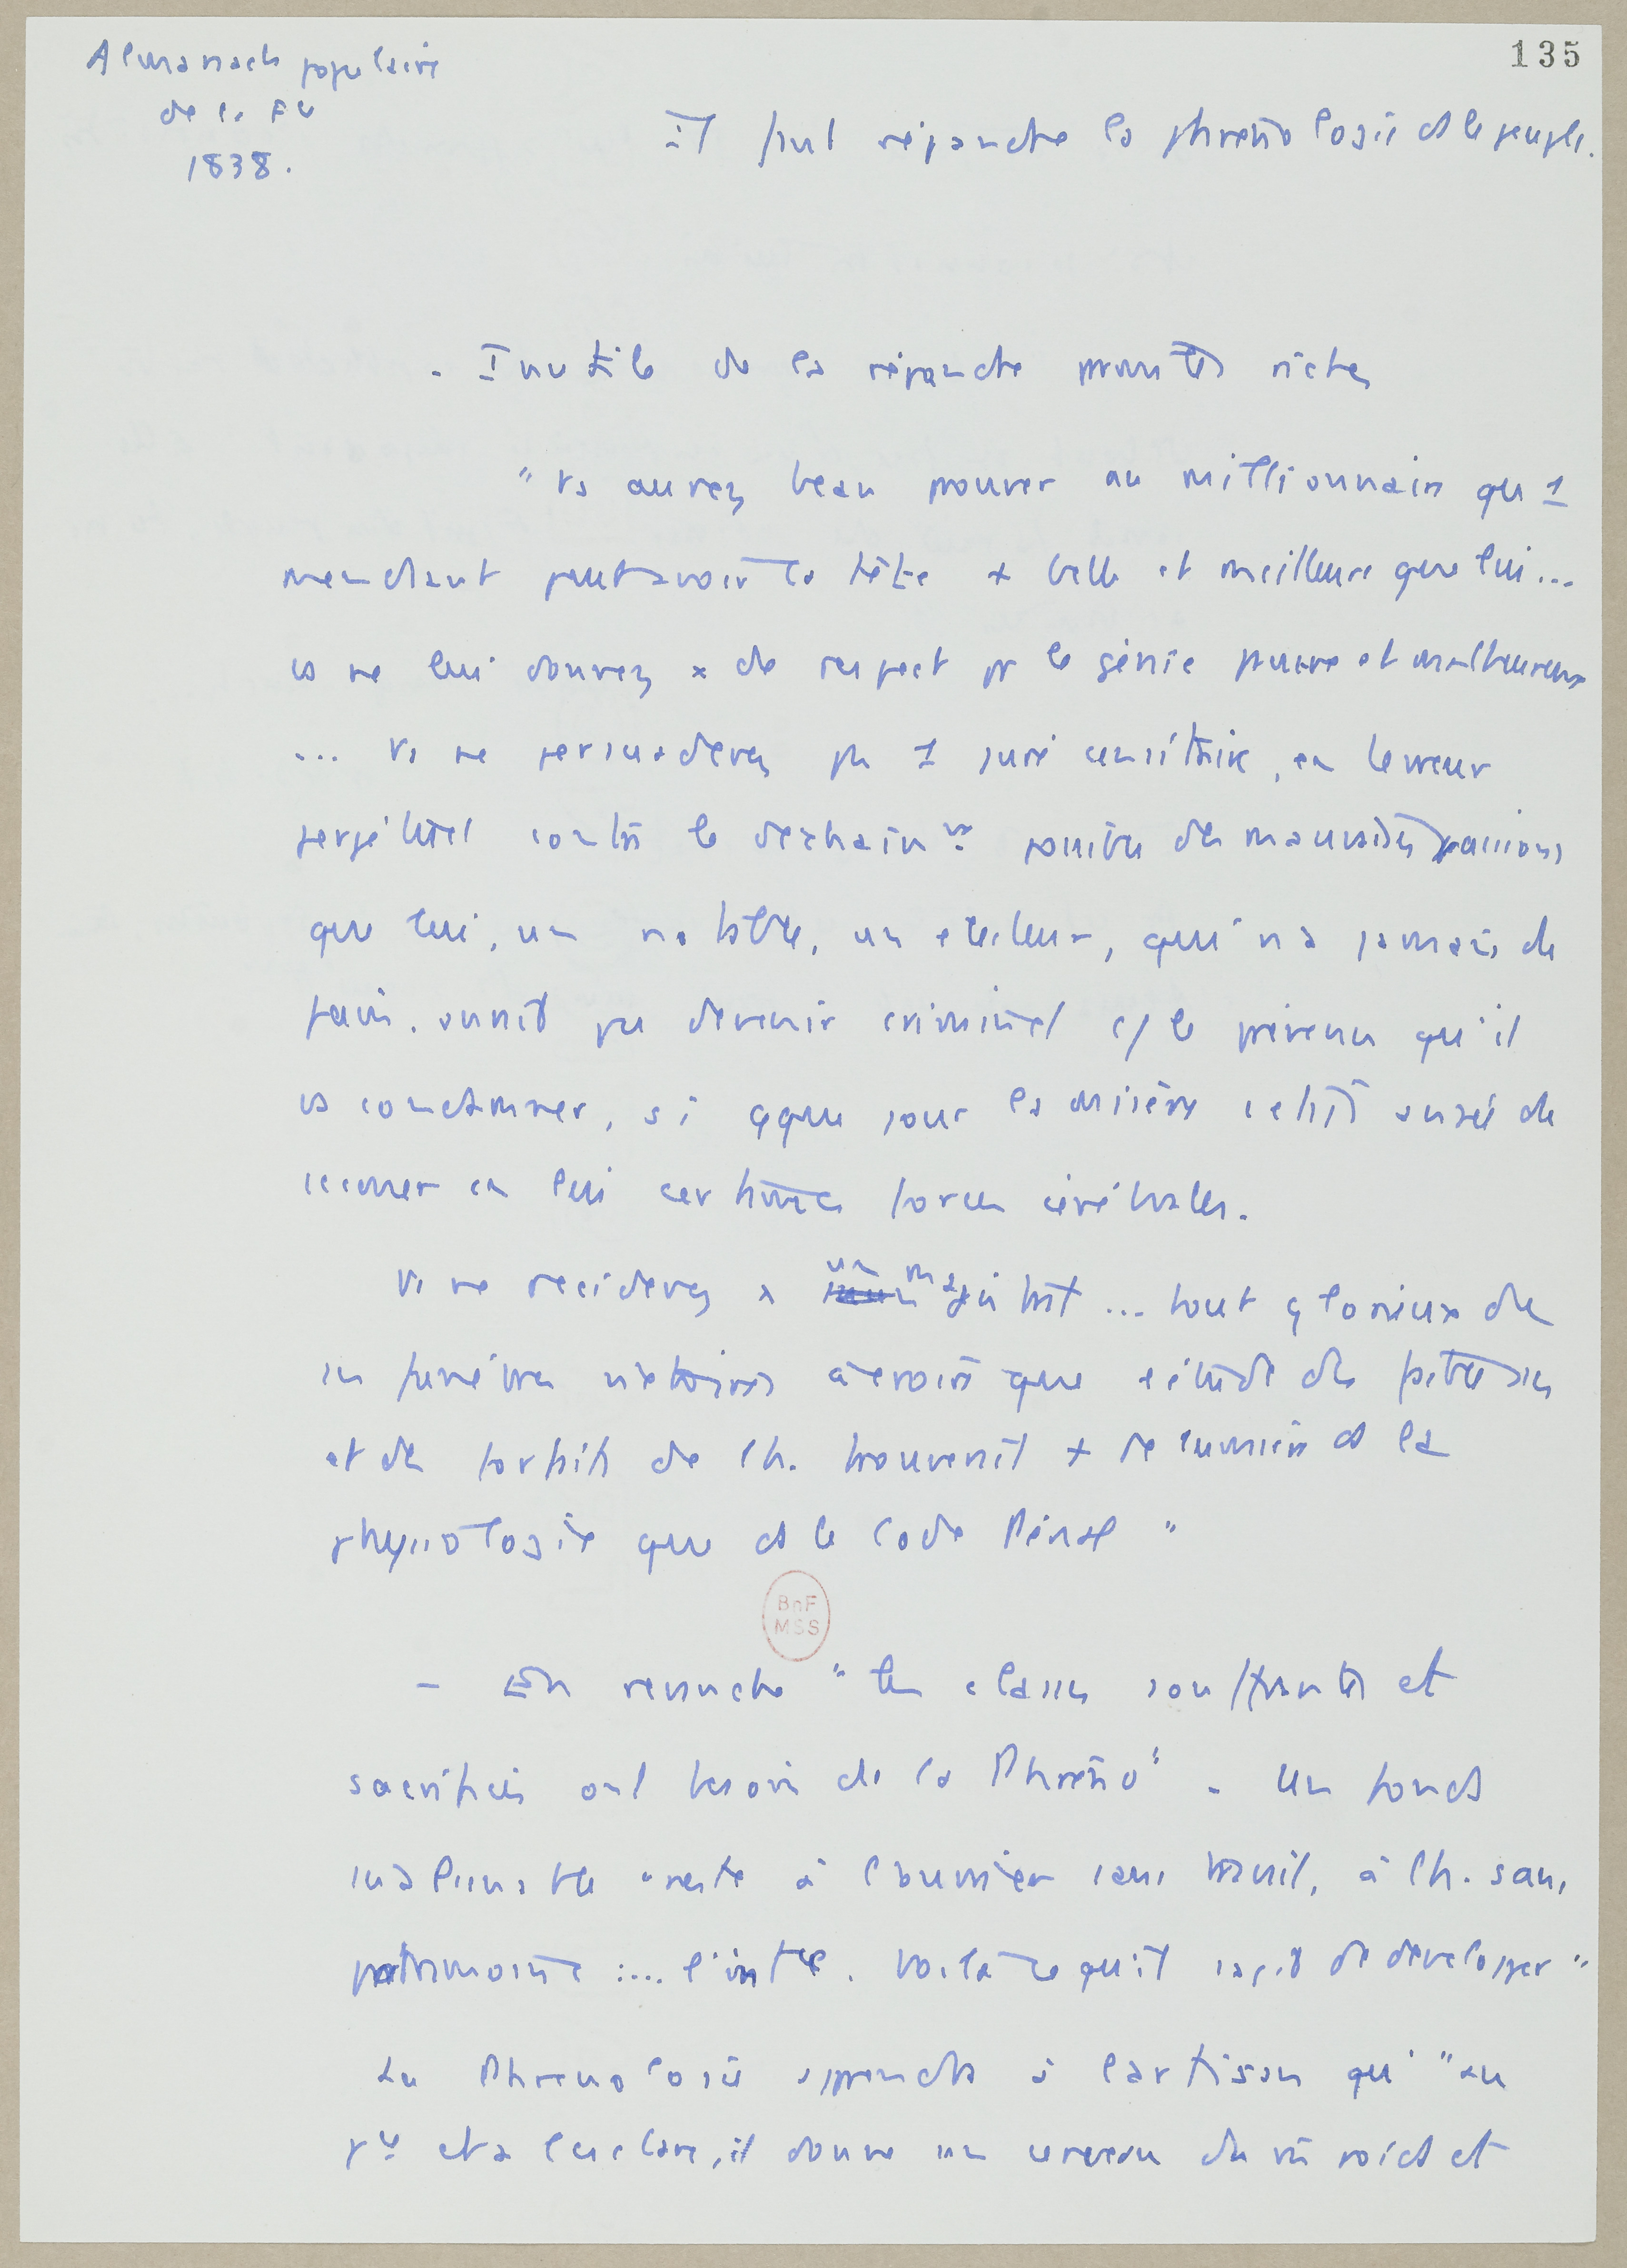 135
Almanach populaire
de la Fce
1838.
Il faut répandre la phrénologie ds le peuple.
- Inutile de la répandre parmi les riches
" Vs aurez beau prouver au millionnaire qu 1
mendiant peut avoir la tête + belle et meilleure que lui...
vs ne lui donnerez x de respect pr le génie pauvre et malheureux
... Vs ne persuaderez pas 1 juré censitaire, en
perpétuel contre le déchainnt subite des mauvaises passions
que lui, un notable, un électeur, qui n'a jamais de
faim, aurait pu devenir criminel c/ le prévenu qu'il
va condamner, si qque jour la misère était de
en lui certaines forces cérébrales.
Vs ne déciderez x un magistrat ... tout glorieux de
ses funèbres victoires à croire que l'étude des pb
et des forfaits de l'h. trouverait + de lumière ds la
physiologie que ds le Code Pénal "
BnF
MSS
- En revanche " les classes souffrantes et
sacrifiées ont besoin de la Phréno" - Un fonds
inaliénable "reste à l'ouvrier sans travail, à l'h. sans
patrimoine :... l'intce. Voilà ce qu'il s'agit de développer "
La Phrénologie apprendra à l'artisan qu' "au
et à l'esclave, il donne un cerveau du poids et